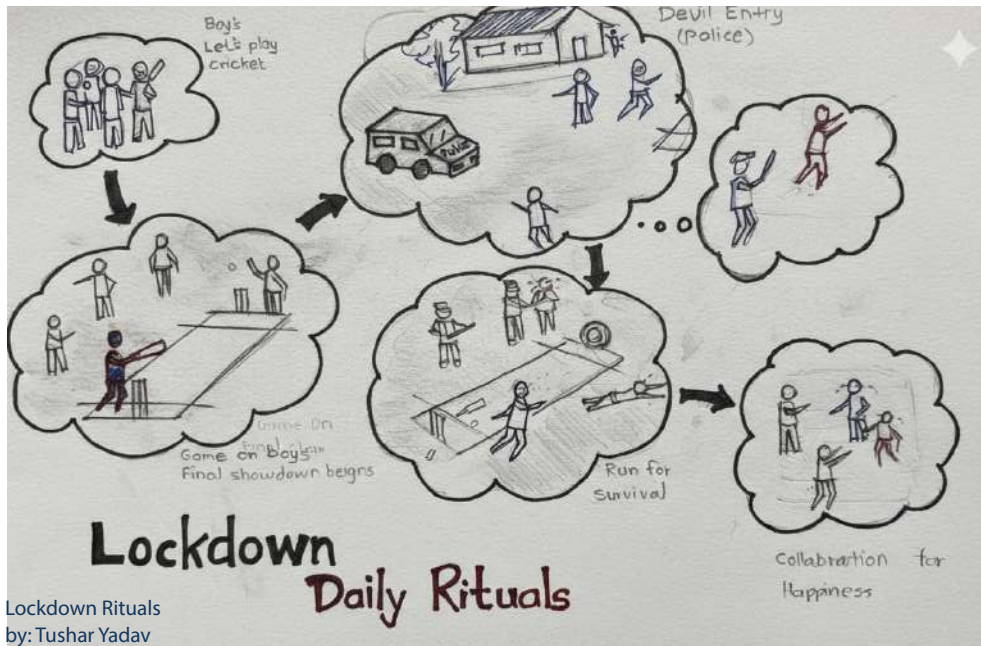 Boy's
Let's play
cricket
Devil Entry
(Police)
Police
Game On
Game on boy's
Final showdown beigns
Run for
Survival
Collabrartion for
Happiness
Lockdown
Daily Rituals
Lockdown Rituals
by: Tushar Yadav